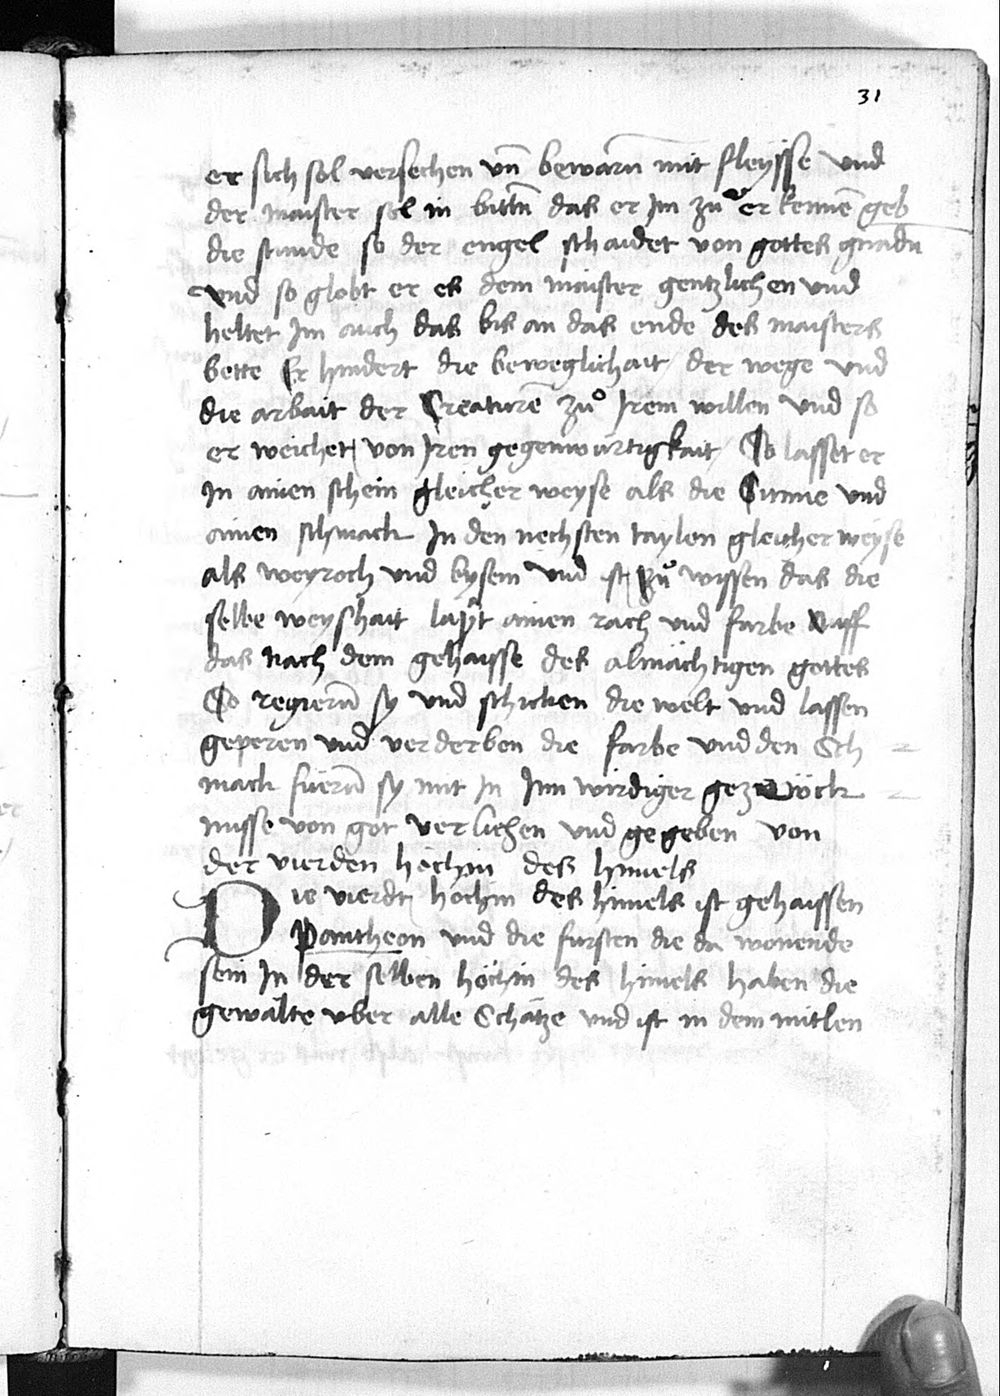 31
er sich sol versechen vn̄ bewarn̄ mit fleysse vnd
der maister sol in bittn̄ das er Im zů erkennē geb
die stunde so der engel schaidet von gottes gnadn
vnd so globt er es dem maister gentzlichen vnd
heltet Im auch das bis an das ende des maisters
bette Er hindert die beweglichait der wege vnd
die arbait der Creaturē zů Irem willen vnd so
er weichet von Iren gegenwürtigkait So lasset er
In ainen schein gleicher weyse als die Sunne vnd
ainen schmack In den nechsten taylen gleicher weyse
als weyroch vnd bysem vnd ist zů wissen das die
selbe weyshait lapt ainen rach vnd farbe
das nach dem gehaysse des almächtigen gottes
So regiern̄ sy vnd schicken die welt vnd lassen
geperen vnd verderben die farbe vnd den Sch =
mack füern̄ sy mit In Inn wirdiger =
nusse von got verlichen vnd gegeben von
der vierden höchin des himels
Die vierdt höchin des himels ist gehaissen
Pantheon vnd die fürsten die da wonende
sein In der selben höchin des himels haben die
gewälte vber alle Schätze vnd ist in dem mitlen